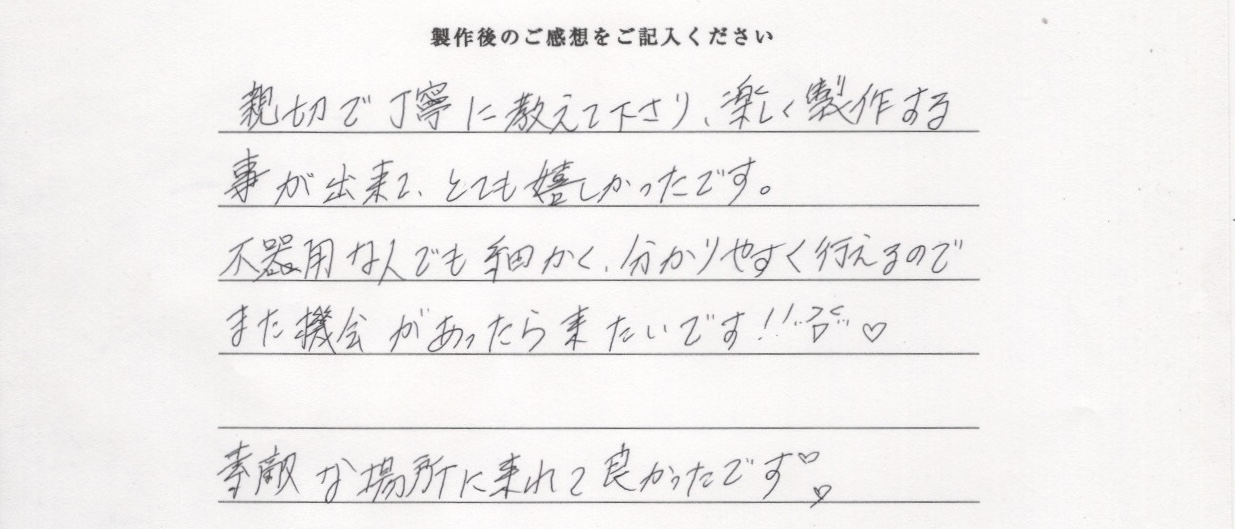 製作後のご感想をご記入ください
親切で丁寧に教えて下さり、楽しく製作する
事が出来て、とても嬉しかったです。
不器用な人でも細かく、分かりやすく行えるので
また機会があったら来たいです!! ♡
素敵な場所に来れて良かったです♡♡